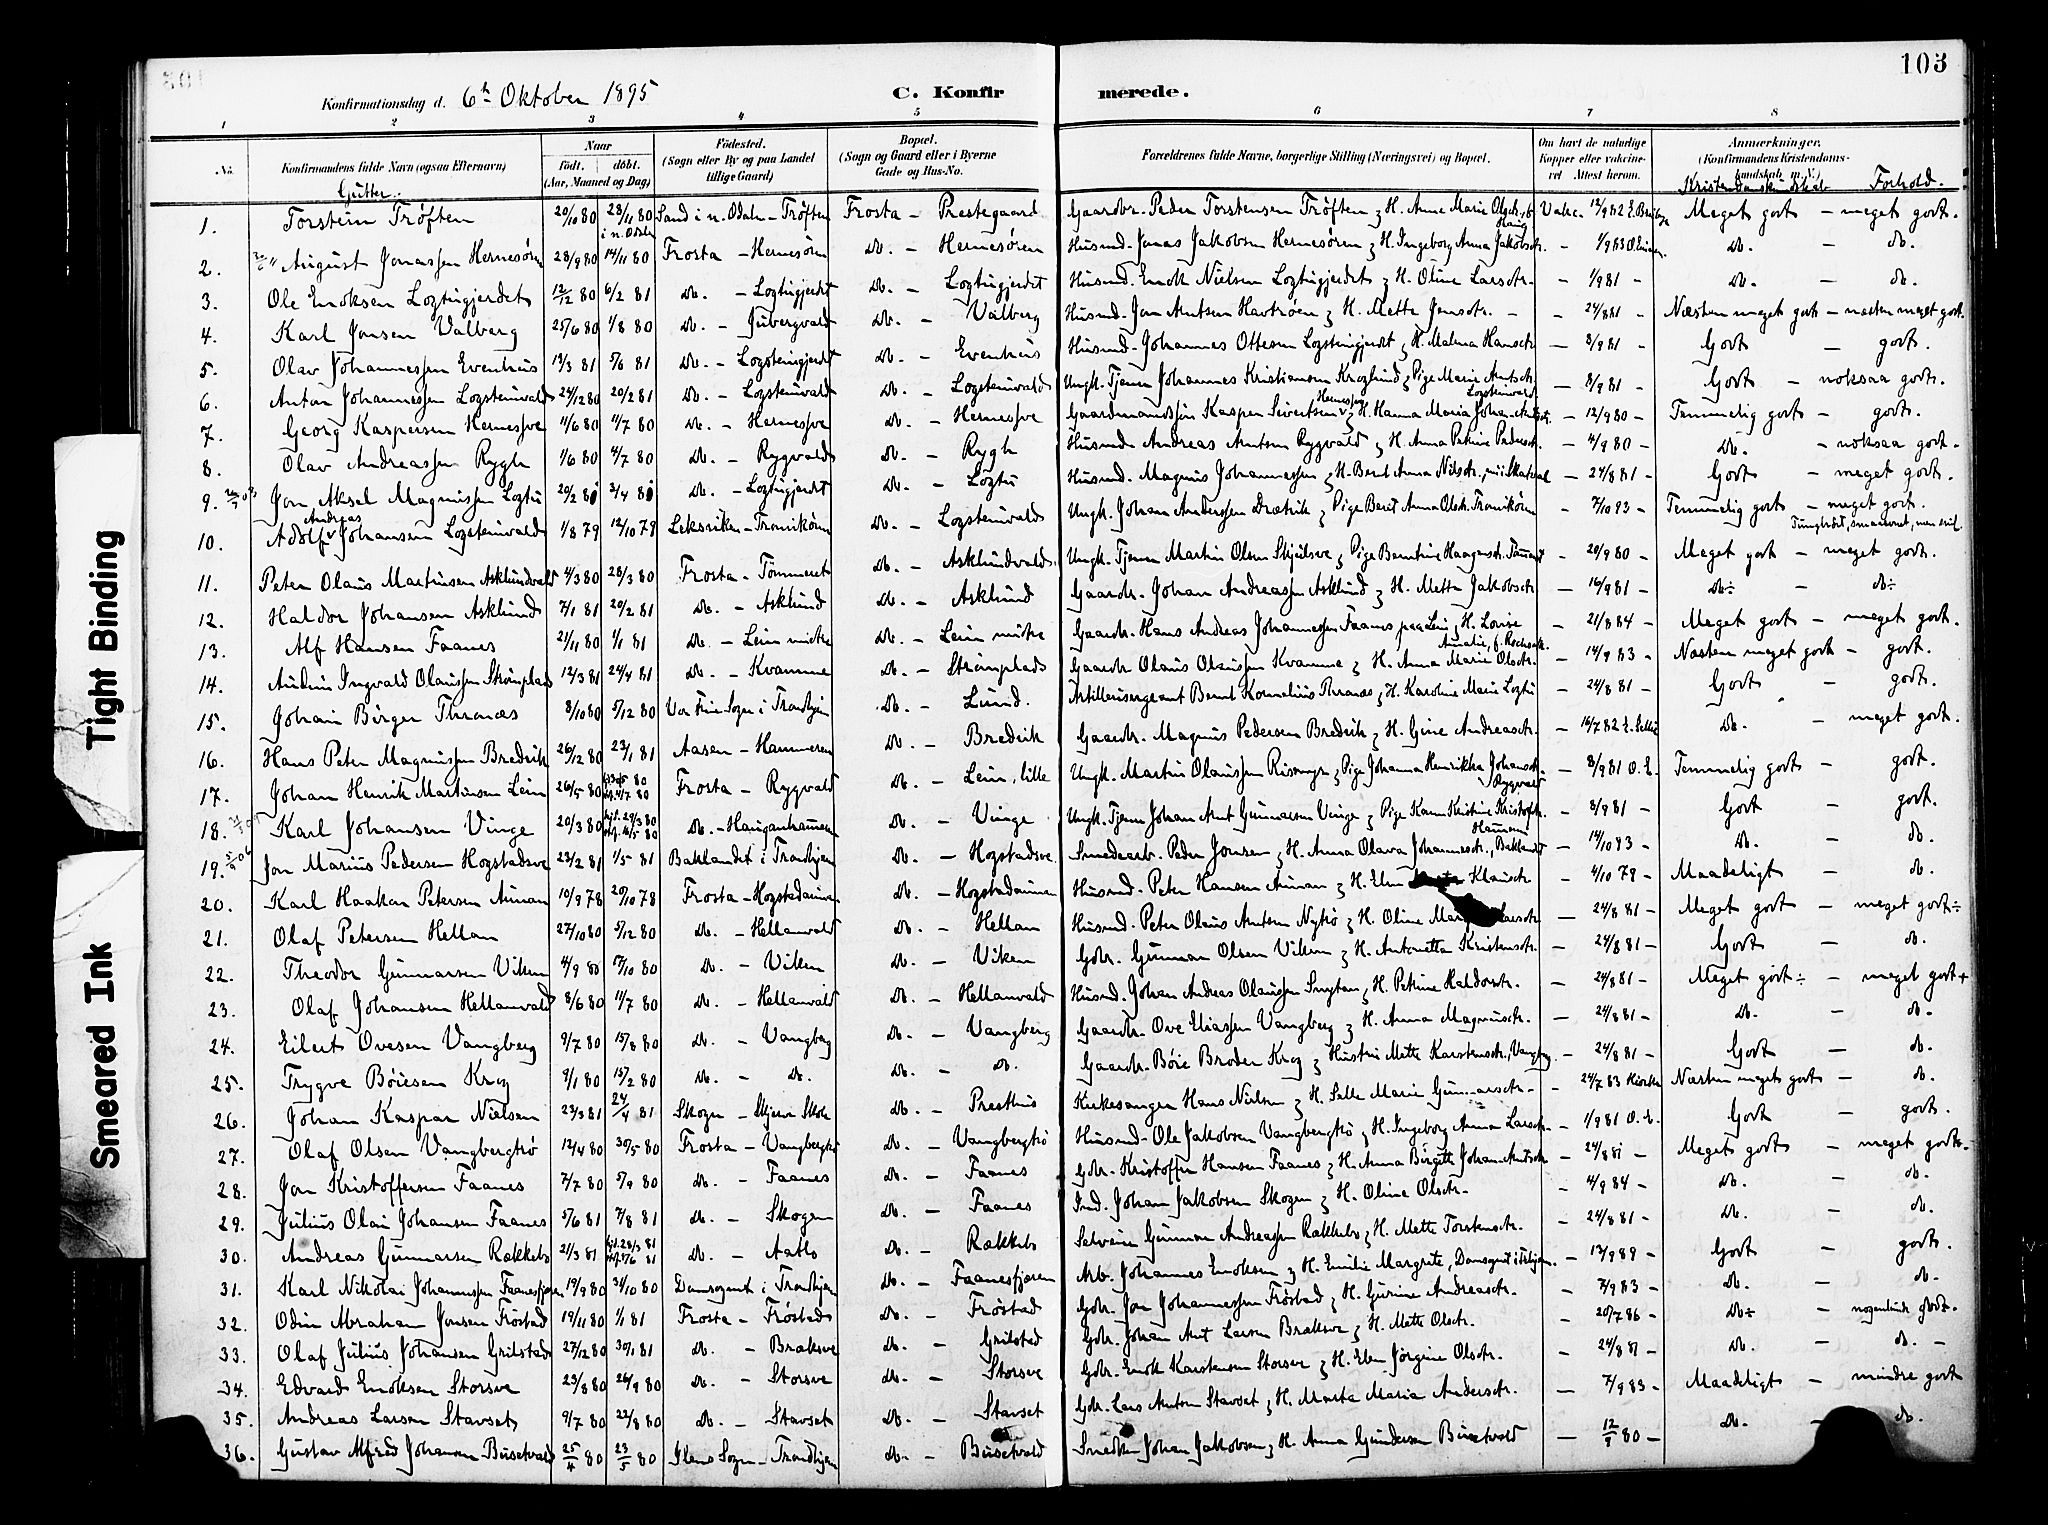 103
Konfirmationsdag d. 6te Oktober 1895 C. Konfirmerede.
1 2 3 4 5 6 7 8
No. Konfirmandens fulde Navn (ogsaa Efternavn) Naar Født. døbt. (Aar, Maaned og Dag) Fødested. (Sogn eller By og paa Landet tillige Gaard) Bopæl. (Sogn og Gaard eller i Byerne Gade og Hus-No. Forældrenes fulde Navne, borgerlige Stilling (Næringsvei) og Bopæl. Om havt de naturlige Kopper eller vaccineret Attest herom. Anmærkninger. (Konfirmandens Kristendomskundskab m. V.)
Gutter. Kristendomskundskab Forhold.
1. Torstein Trøften 20/10 80 28/11 80 i n. Odalen Sand i n. Odalen - Trøften Frosta - Prestegaard Gaardbr. Peder Torstensen Trøften & H. Anne Marie Olsdtr. Vakc. 12/9 82 Meget godt - meget godt.
2. August Jonassen Hernesøren 28/9 80 14/11 80 Frosta - Hernesøren do. - Hernesøren Husmd. Jonas Jakobsen Hernesøren & H. Ingeborg Anna Jakobsdtr. - 1/9 83 do. - do.
3. Ole Enoksen Logtugjerdet 12/12 80 6/2 81 do. - Logtugjerdet do. - Logtugjerdet Husmd. Enok Nielsen Logtugjerdet & H. Oline Larsdtr. - 1/9 81 - do. - do.
4. Karl Jonsen Valberg 25/6 80 1/8 80 do. - Jubergvald do. - Valberg Husmd. Jon Arntsen Havtrøen & H. Mette Jensdtr. - 24/8 81 - Næsten meget godt - næsten meget godt.
5. Olav Johannessen Evenhus 13/3 81 5/6 81 do. - Logsteingjerdet do. - Evenhus Husmd. Johannes Ottesen Logsteingjerdet & H. Malena Hansdtr. - 8/9 81 - Godt - godt.
6. Anton Johannessen Logsteinvald 24/12 80 20/2 81 do. - Logsteinvald do. - Logsteinvald Ungk. Tjener Johannes Kristiansen Kroglund & Pige Marie Arntsdtr. Logsteinvald - 8/9 81 - Godt - noksaa godt.
7. Georg Kaspersen Hernessve 11/6 80 11/7 80 do. - Hernessve do. - Hernessve Gaardmandssøn Kasper Sivertsen Hernessve & H. Hanna Maria Johan Arntsdtr. - 12/9 80 - Temmelig godt - godt.
8. Olav Andreassen Rygh 1/6 80 4/7 80 do. - Rygvald do. - Rygh Husmd. Andreas Arntsen Rygvald & H. Anna Petrine Pedersdtr. - 4/9 80 - do. - noksaa godt.
9. Jon Aksel Magnussen Logtu 20/2 81 3/4 81 do. - Logtugjerdet do. - Logtu Husmd. Magnus Johannessen & H. Berit Anna Nilsdtr. - 24/8 81 - Godt - meget godt.
10. Adolf Andreas Johansen Logsteinvald 1/8 79 12/10 79 Leksviken - Tronikøren do. - Logsteinvald Ungk. Johan Anderssen Drætvik & Pige Berit Anna Olsdtr. Tronikøren - 7/10 93 - Temmelig godt - meget godt.
11. Peter Olaus Martinsen Asklundvald 4/3 80 28/3 80 Frosta - Tømmeret do. - Asklundvald Ungk. Tjener Martin Olsen Skjeilsve & Pige Berntine Haagensdtr. - 20/9 80 - Meget godt - meget godt.
12. Haldor Johansen Asklund 7/1 81 20/2 81 do. - Asklund do. - Asklund Gaardbr. Johan Andreassen Asklund & H. Mette Jakobsdtr. - 16/9 81 - do÷ - do÷
13. Alf Hansen Faanes 21/11 80 1/1 81 do. - Lein midtre do. - Lein midtre Gaardbr. Hans Andreas Johannessen Faanes paa Lein & H. Lovise Amalie - 21/8 84 - Meget godt - meget godt.
14. Audun Ingvald Olaussen Strømplads 12/3 81 24/4 81 do. - Kvamme do. - Strømplads Gaardbr. Olaus Olaussen Kvamme & H. Anna Marie Olsdtr. - 14/9 83 - Næsten meget godt - godt.
15. Johan Birger Thranæs 8/10 80 5/12 80 Vor Frue Sogn i Trondhjem do. - Lund. Artillerisergeant Bernt Kornelius Thranæs & H. Karoline Marie Logtu - 24/8 81 - Godt - godt.
16. Hans Peter Magnussen Bredvik 26/12 80 23/1 81 Aasen - Hammeren do. - Bredvik Gaardbr. Magnus Pedersen Bredvik & H. Gine Andreasdtr. - 16/7 82 do. - meget godt.
17. Johan Henrik Martinsen Lein 26/5 80 4/7 80 Frosta - Rygvald do. - Lein, lille Ungk. Martin Olaussen Risamyr & Pige Johanna Henrikka Johansdtr. Rygvald - 8/9 81 O. E. Temmelig godt - godt.
18. Karl Johansen Vinge 20/3 80 hjd. 29/3 80 16/5 80 do. - Hauganhammeren do. - Vinge Ungk. Tjener Johan Arnt Gunnarsen Vinge & Pige Karen Kristine Kristofsdtr. - 8/9 81 - Godt - godt.
19. Jon Marius Pedersen Hogstadsve 23/2 81 1/5 81 Baklandet i Trondhjem do. - Hogstadsve Smedearb. Peder Jonsen & H. Anna Olava Johannesdtr., Baklandet - 14/10 93 - do. - do.
20. Karl Haakon Petersen Aunan 10/9 78 20/10 78 Frosta - Hogstadaunan do. - Hogstadaunan Husmd. Peter Hansen Aunan & H. Elen Klausdtr. - 4/10 79 - Maadeligt - do.
21. Olaf Petersen Hellan 27/10 80 5/12 80 do. - Hellanvald do. - Hellan Husmd. Peter Olaus Arntsen Nytrø & H. Oline Larsdtr. - 24/8 81 - Meget godt - meget godt÷
22. Theodor Gunnarsen Viken 4/9 80 17/10 80 do. - Viken do. - Viken Gdbr. Gunnar Olsen Viken & H. Antonetta Kristensdtr. - 24/8 81 - Godt - do.
23. Olaf Johansen Hellanvald 8/6 80 11/7 80 do. - Hellanvald do. - Hellanvald Husmd. Johan Andreas Olaussen & H. Petrine Haldorsdtr. - 24/8 81 - Meget godt÷ - meget godt+
24. Eilert Ovesen Vangberg 9/7 80 15/8 80 do. - Vangberg do. - Vangberg Gaardbr. Ove Eliassen Vangberg & H. Anna Magnusdtr. - 24/8 81 - do. - do.
25. Trygve Bøiesen Krog 9/1 80 15/2 80 do. - do. do. - do. Gaardbr. Bøie Broder Krog & Hustru Mette Karstensdtr., Vangberg. - 24/8 81 - Godt - do.
26. Johan Kaspar Nielsen 23/3 81 24/4 81 Skogn - Skjerve Skole do. - Presthus Kirkesanger Hans Nielsen & H. Selle Marie Gunnarsdtr. - 24/7 83 Næsten meget godt - do.
27. Olaf Olsen Vangbergtrø 12/4 80 30/5 80 Frosta - Vangbergtrø do. - Vangbergtrø Husmd. Ole Jakobsen Vangbergtrø & H. Ingeborg Anna Larsdtr. - 1/9 81 O. E. Godt - godt.
28. Jon Kristoffersen Faanes 7/7 80 5/9 80 do. - Faanes do. - Faanes Gdbr. Kristoffer Hansen Faanes & H. Anna Birgitte Johan Arntsdtr. - 24/8 81 - Meget godt - meget godt.
29. Julius Olai Johansen Faanes 5/6 81 7/8 81 do. - Skogen do. - Faanes Ind. Johan Jakobsen Skogen & H. Oline Olsdtr. - 4/9 84 - do. - do.
30. Andreas Gunnarsen Rokkeberg 21/3 81 hjd. 28/3 81 5/6 81 do. - Aatlo do. - Rakkebo Selveier Gunnar Andreassen Rakkebo & H. Mette Torstensdtr. - 24/8 81 - do. - do.
31. Karl Nikolai Johannessen Faanesfjæren 19/9 80 31/10 80 Domsognet i Trondhjem do. - Faanesfjæren Arb. Johannes Enoksen & H. Emilie Margrete, Domsognet i Tr.hjem. - 13/9 89 - Godt - godt.
32. Odin Abraham Jonsen Frøstad 19/11 80 1/1 81 Frosta - Frøstad do. - Frøstad Gdbr. Jon Johannessen Frøstad & H. Gurine Andreasdtr. - 7/9 83 - do. - do.
33. Olaf Julius Johansen Grilstad 27/12 80 30/1 81 do. - Braksve do. - Grilstad Gdbr. Johan Arnt Larsen Braksve & H. Mette Olsdtr. - 20/7 86 - do÷ - nogenlunde godt.
34. Edvard Enoksen Storsve 23/8 80 26/9 80 do. - Storsve do. - Storsve Gdbr. Enok Karstensen Storsve & H. Elen Jørgine Olsdtr. - 24/8 81 - do. - do. -
35. Andreas Larsen Stavset 9/7 80 22/8 80 do. - Stavset do. - Stavset Gdbr. Lars Arntsen Stavset & H. Marta Maria Andersdtr. - 7/9 83 - Maadeligt - mindre godt
36. Gustav Alfred Johansen Busetvald 25/4 80 23/5 80 Ilens Sogn - Trondhjem do. - Busetvald Smedsv. Johan Jakobsen & H. Anna Gundersen Busetvald - 12/9 80 - do. - do.
Tight Binding
Smeared Ink